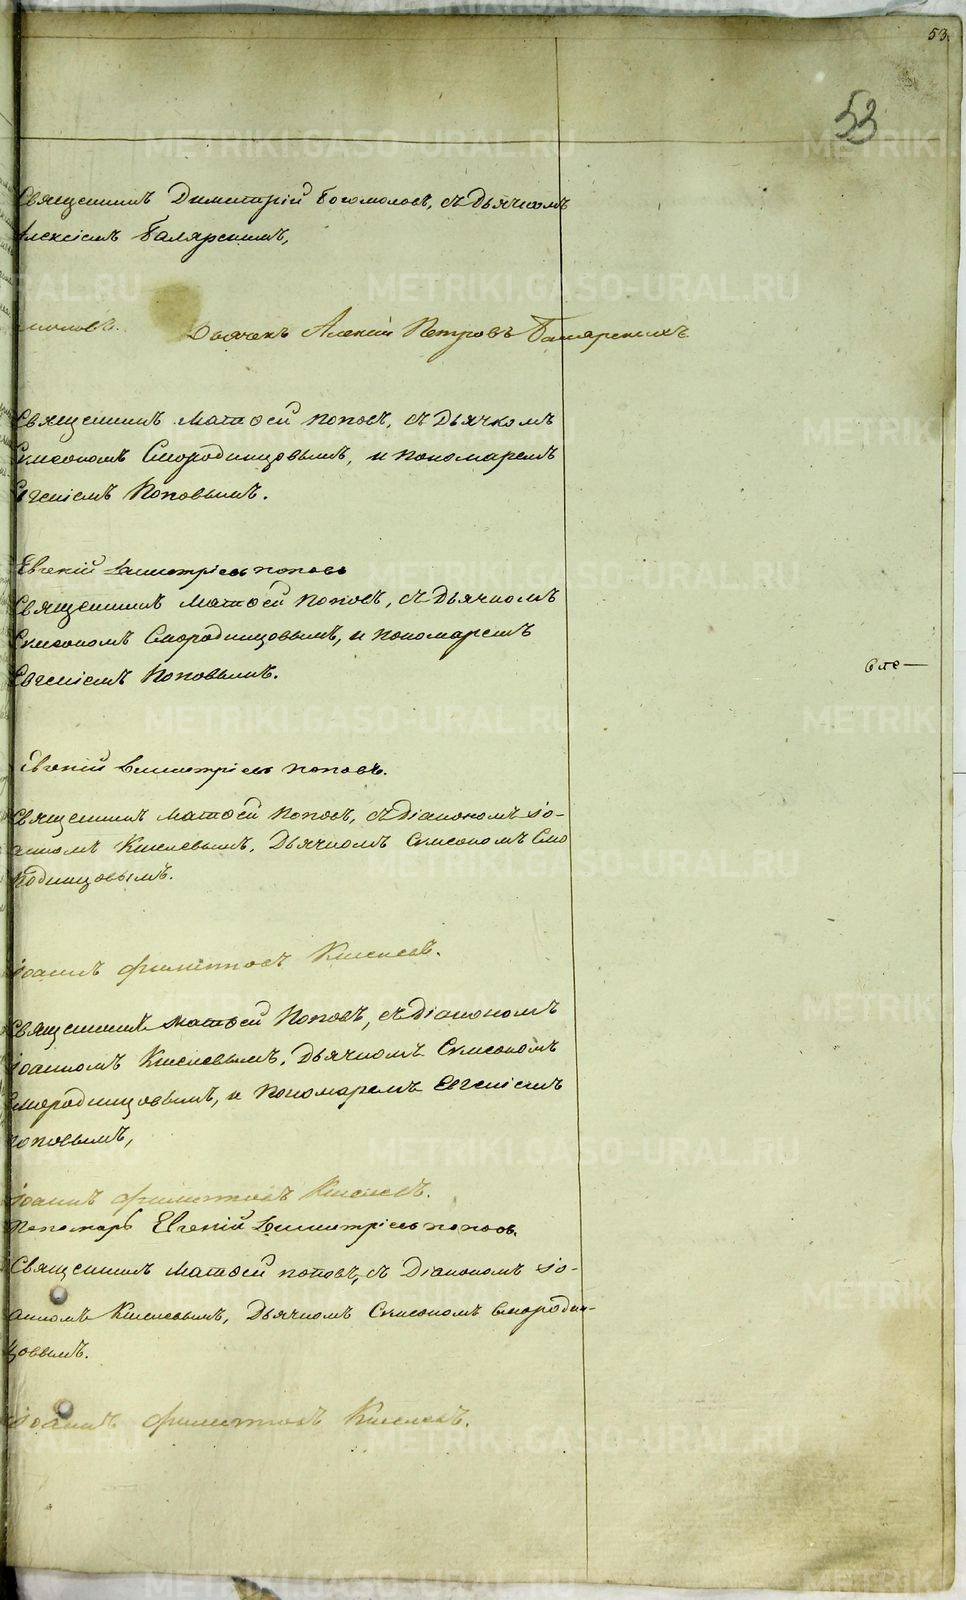 53.
53
Священникъ Димитрій Богомоловъ, съ Дьячкомъ
Алексіемъ Балярскимъ,
Дьячекъ Алексій Петровъ Балярскихъ
Священникъ Матѳей Поповъ, съ Дьячкомъ
Симеономъ Смородинцовымъ, и пономаремъ
Евгеніемъ Поповымъ.
Евгеній Димитріевъ поповъ
Священникъ Матѳей Поповъ, съ Дьячкомъ
Симеономъ Смородинцовымъ, и пономаремъ
Евгеніемъ Поповымъ.
Евгеній Димитріевъ поповъ.
Священникъ Матѳей Поповъ, съ Діакономъ Іо-
анномъ Киселевымъ, Дьячкомъ Симеономъ Смо
родинцовымъ.
Іоаннъ Филиповъ Киселевъ.
Священникъ Матѳей Поповъ, съ Діакономъ
Іоанномъ Киселевымъ, Дьячкомъ Симеономъ
Смородинцовымъ, и Пономаремъ Евгеніемъ
Поповымъ,
Іоаннъ Филиповъ Киселевъ.
Пономарь Евгеній Димитріевъ поповъ.
Священникъ Матѳей поповъ, съ Діакономъ Іо-
анномъ Киселевымъ, Дьячкомъ Симеономъ Смородин-
цовымъ.
Іоаннъ Филиповъ Киселевъ.
METRIKI.GASO-URAL.RU